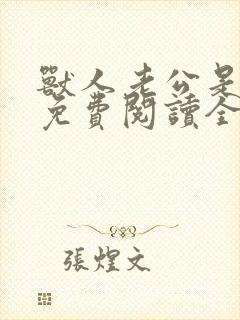 獸人老公是
免費閱讀全
張煌文